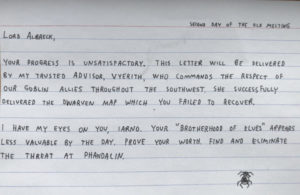 SECOND DAY OF THE OLD MELTING
LORD ALBRECK,
YOUR PROGRESS IS UNSATISFACTORY. THIS LETTER WILL BE DELIVERED
BY MY TRUSTED ADVISOR, VYERITH, WHO COMMANDS THE RESPECT OF
OUR GOBLIN ALLIES THROUGHOUT THE SOUTHWEST. SHE SUCCESSFULLY
DELIVERED THE DWARVEN MAP WHICH YOU FAILED TO RECOVER.
I HAVE MY EYES ON YOU, IARNO. YOUR "BROTHERHOOD OF BLUES" APPEARS
LESS VALUABLE BY THE DAY. PROVE YOUR WORTH. FIND AND ELIMINATE
THE THREAT AT PHANDALIN.